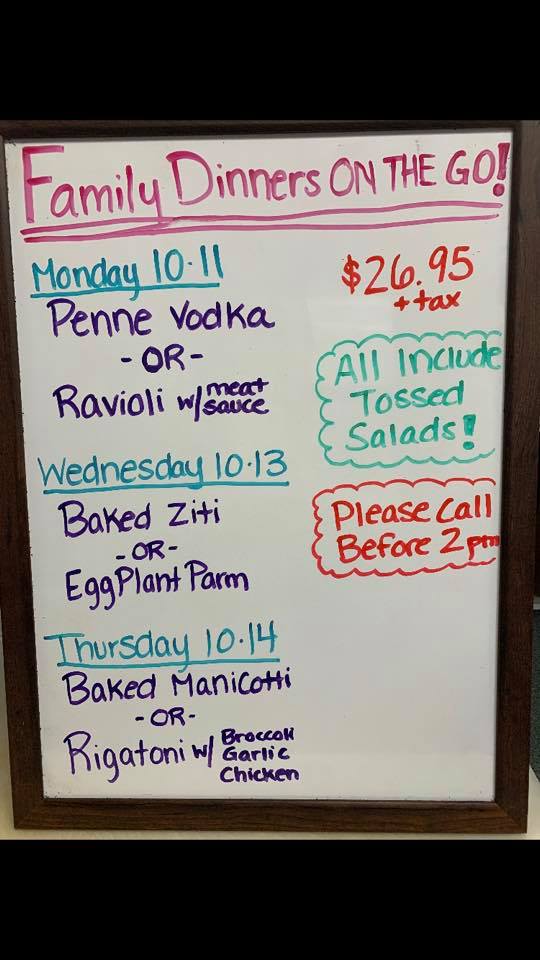 Family Dinners ON THE GO!
Monday 10.11
Penne Vodka
- OR -
Ravioli w/ meat sauce
Wednesday 10.13
Baked Ziti
- OR -
EggPlant Parm
Thursday 10.14
Baked Manicotti
- OR -
Rigatoni w/ Broccoli
Garlic
Chicken
$26.95
+ tax
All Include
Tossed
Salads!
Please Call
Before 2 pm